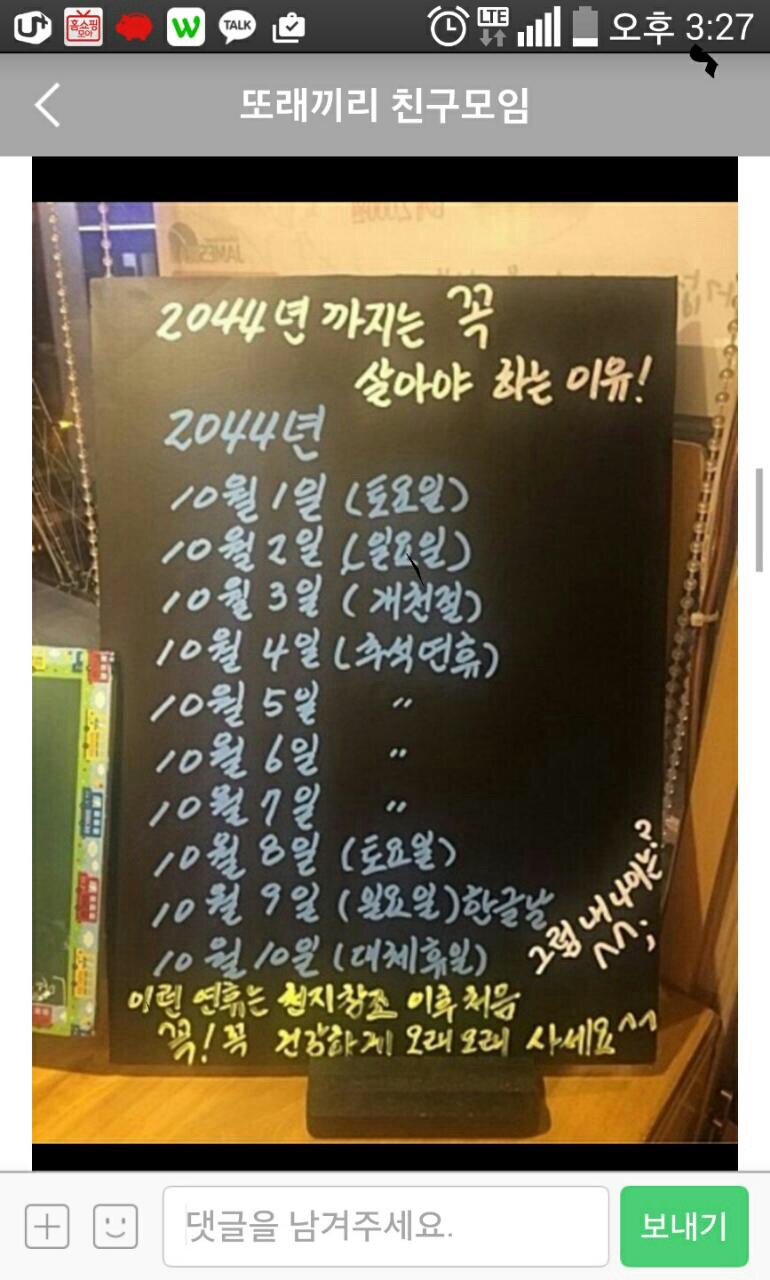 U+
홈쇼핑
모아
W
TALK
LTE
오후 3:27
또래끼리 친구모임
JAMES
2044년 까지는 꼭
살아야 하는 이유!
2044년
10월 1일 (토요일)
10월 2일 (일요일)
10월 3일 (개천절)
10월 4일 (추석연휴)
10월 5일 〃
10월 6일 〃
10월 7일 〃
10월 8일 (토요일)
10월 9일 (일요일)한글날
10월 10일 (대체휴일)
그럼 내 나이는?
^^;
이런 연휴는 천지창조 이후 처음
꼭! 꼭 건강하게 오래오래 사세요^^
댓글을 남겨주세요.
보내기